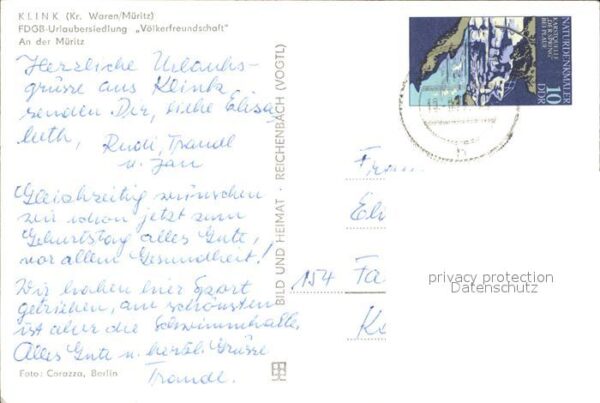 KLINK (Kr. Waren/Müritz)
FDGB-Urlaubersiedlung „Völkerfreundschaft"
An der Müritz
Herzliche Urlaubs-
grüsse aus Klink
senden Dir, liebe Elisa
beth,
Rudi, Traudl
u. Jan
Gleichzeitig wünschen
wir schon jetzt zum
Geburtstag alles Gute,
vor allem Gesundheit!
Wir haben hier Sport
getrieben, am schönsten
ist aber die Schwimmhalle.
Alles Gute u. herzl. Grüsse
Traudl.
Foto: Corazza, Berlin
BILD UND HEIMAT · REICHENBACH (VOGTL)
NATURDENKMÄLER
KARSTQUELLE
„DER SPRING"
BEI PLAUE
DDR
10
Frau
Eli
154 Fa
privacy protection
Datenschutz